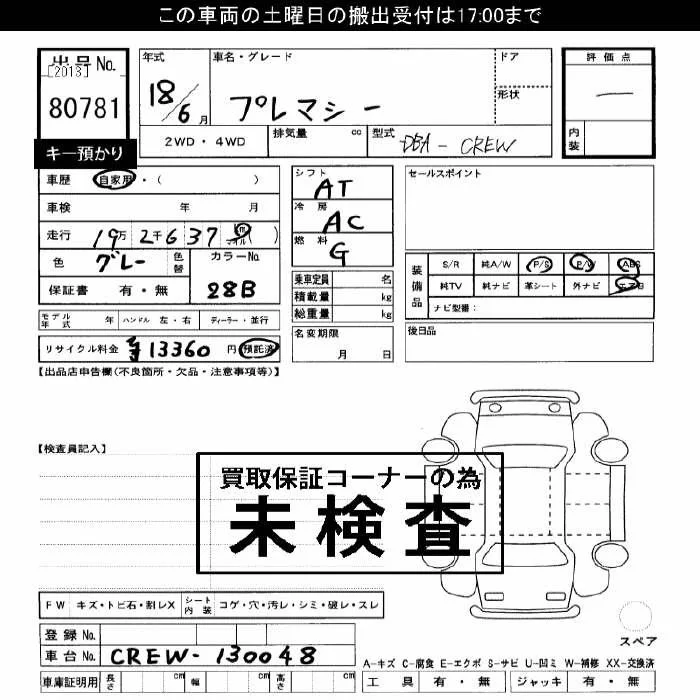 この車両の土曜日の搬出受付は17:00まで
出品No. [2013]
80781
キー預かり
年式 18/6月
車名・グレード プレマシー
ドア
形状
評価点 —
内装
2WD・4WD 排気量 cc 型式 DBA-CREW
車歴 自家用・( )
車検 年 月
走行 19万2千637 km マイル )
色 グレー 色替 カラーNo. 28B
保証書 有・無
シフト AT
冷房 AC
燃料 G
乗車定員 名
積載量 kg
総重量 kg
セールスポイント
装備品 S/R 純A/W P/S P/W ABS
純TV 純ナビ 革シート 外ナビ エアB
ナビ型番:
モデル年式 年 ハンドル 左・右 ディーラー・並行
名変期限 月 日
後日品
リサイクル料金 ¥13360円 預託済
【出品店申告欄(不良箇所・欠品・注意事項等)】
【検査員記入】
買取保証コーナーの為
未検査
FW キズ・トビ石・割レX シート内装 コゲ・穴・汚レ・シミ・破レ・スレ
スペア
登録No.
車台No. CREW-130048
A-キズ C-腐食 E-エクボ S-サビ U-凹ミ W-補修 XX-交換済
車庫証明用 長さ cm 幅 cm 高さ cm 工具 有・無 ジャッキ 有・無